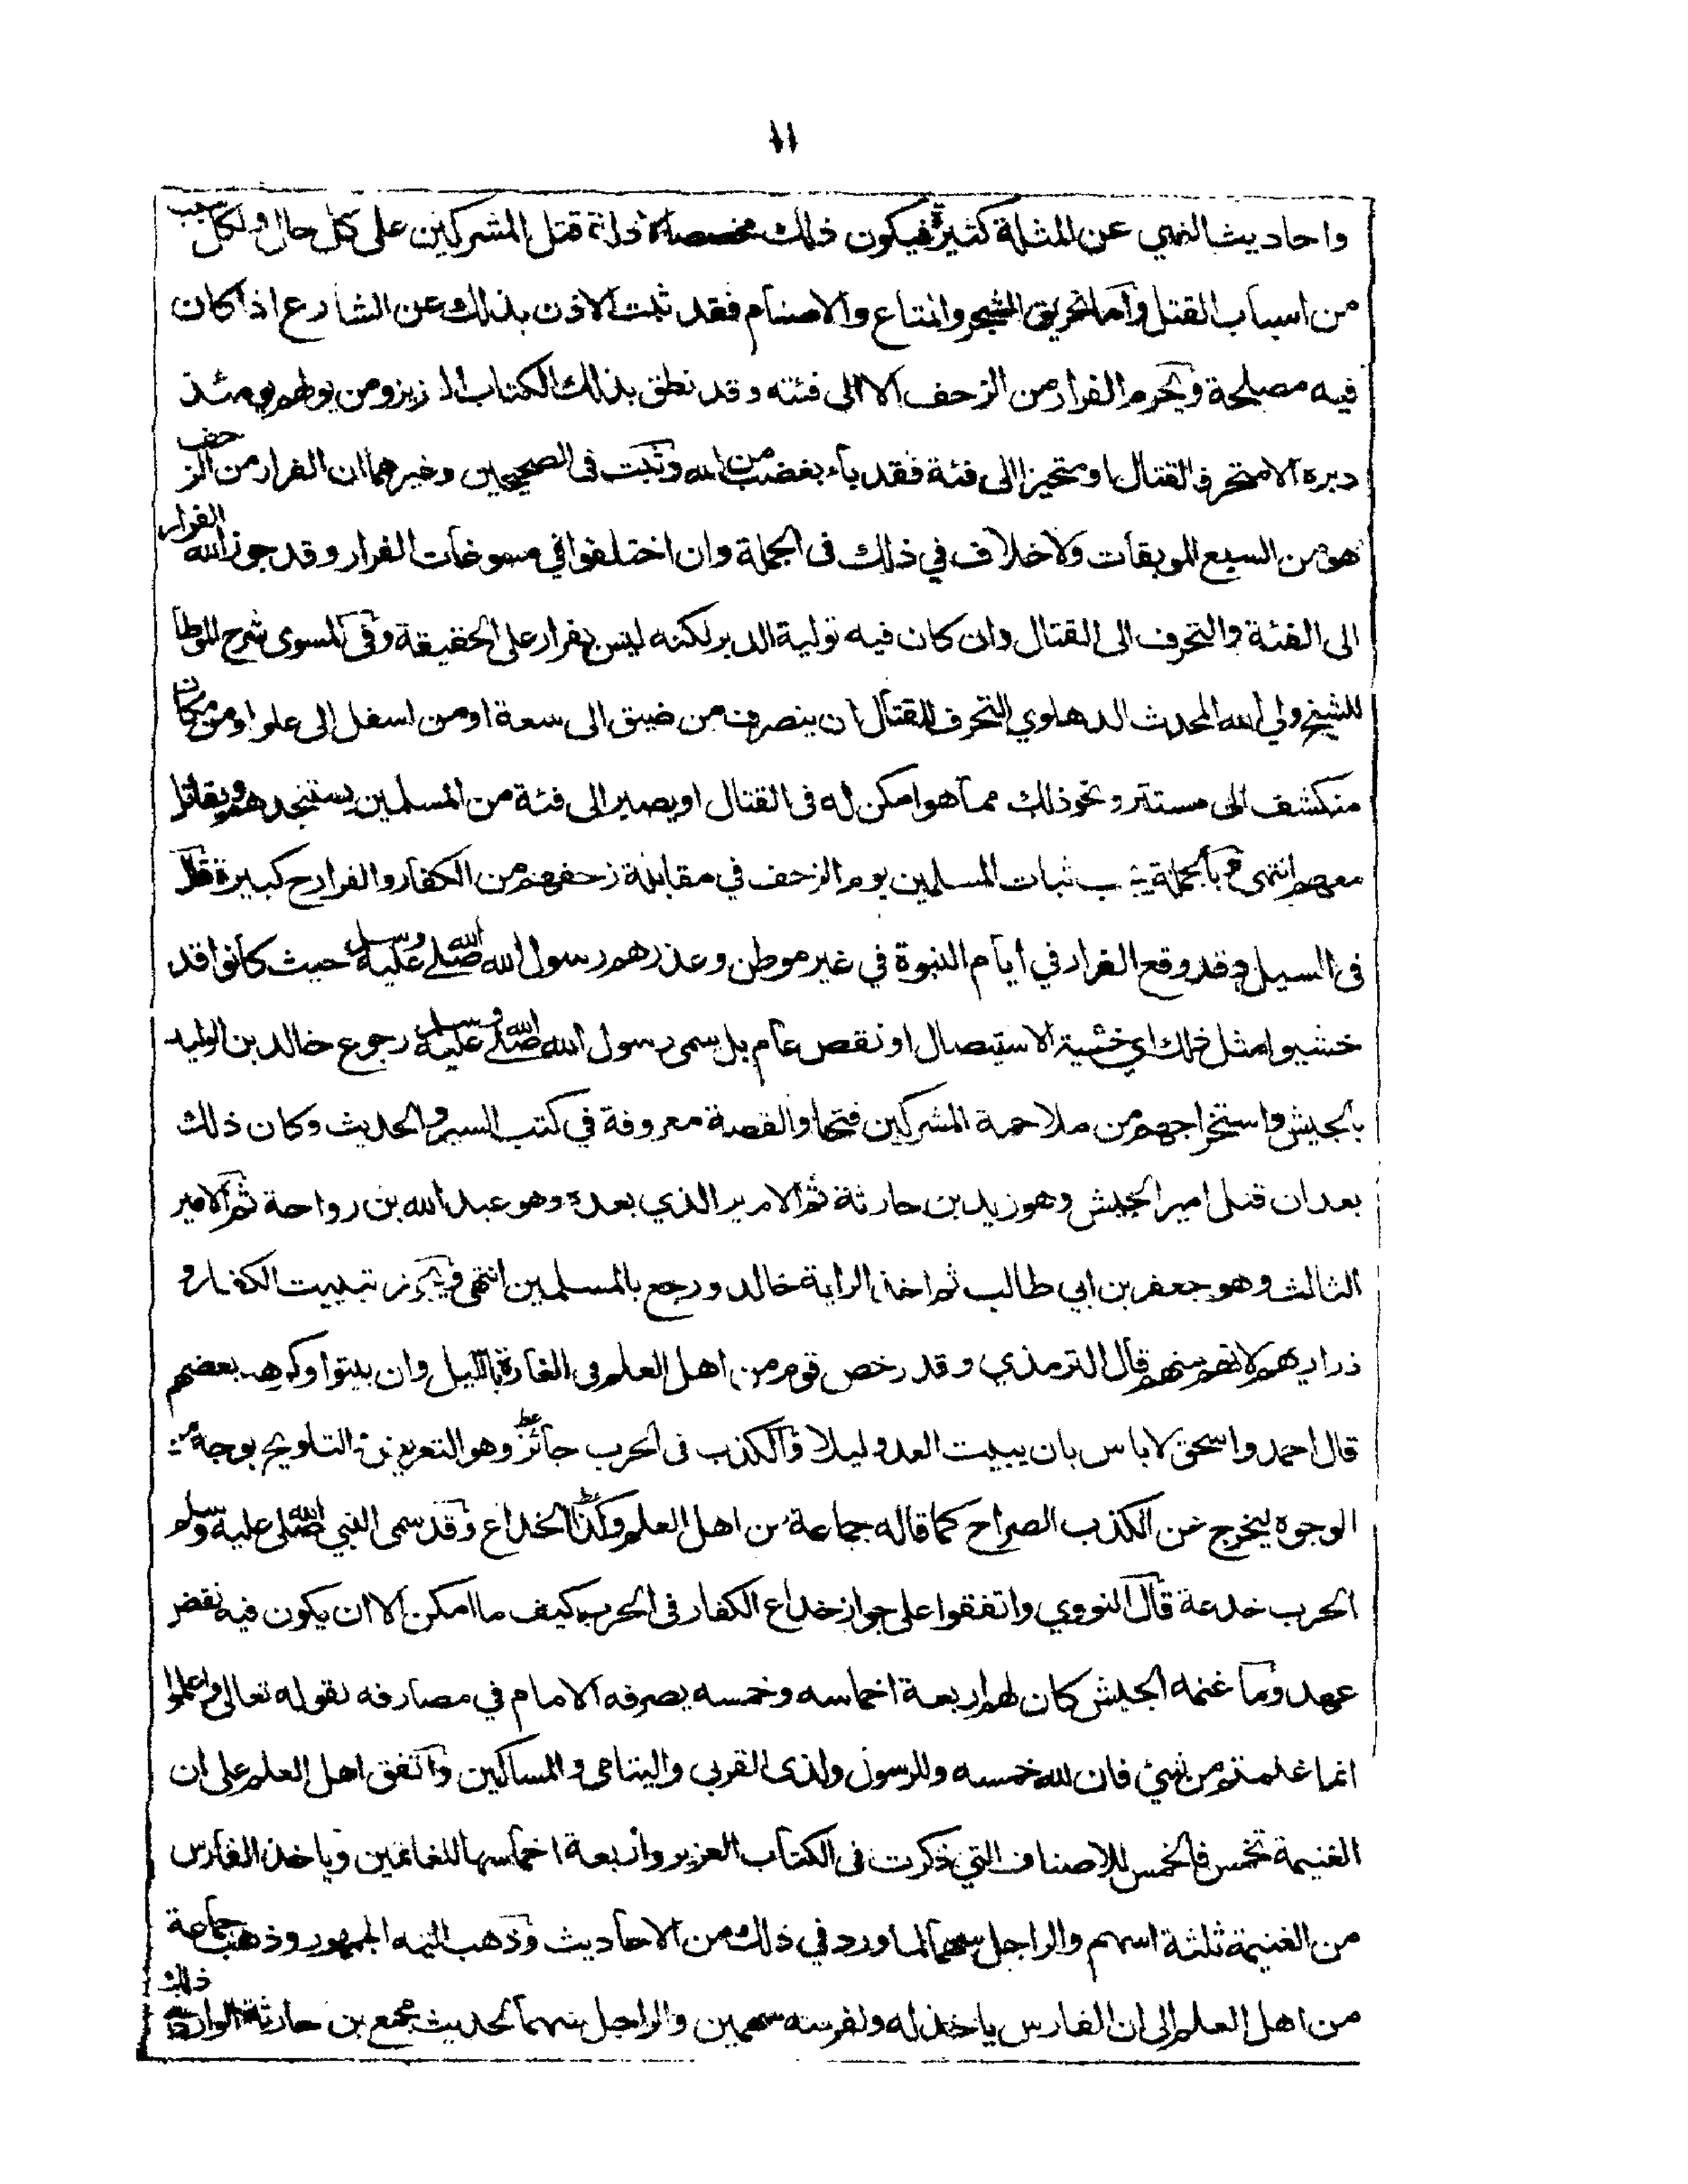 ١١
واحاديث النهي عن المثلة كثيرة فيكون ذلك مخصصا لادلة قتل المشركين على كل حال ولكل سبب
من اسباب القتل واما تحريق الشجر والمتاع والاصنام فقد ثبت الاذن بذلك عن الشارع اذا كان
فيه مصلحة ويحرم الفرار من الزحف الا الى فئته وقد نطق بذلك الكتاب العزيز ومن يولهم يومئذ
دبره الا متحرفا لقتال او متحيزا الى فئة فقد باء بغضب من الله وثبت في الصحيحين وغيرهما ان الفرار من الزحف
هو من السبع الموبقات ولا خلاف في ذلك في الجملة وان اختلفوا في مسوغات الفرار وقد جوز الله الفرار
الى الفئة والتحرف الى القتال وان كان فيه تولية الدبر لكنه ليس بفرار على الحقيقة وفي المسوى شرح الموطا
للشيخ ولي الله المحدث الدهلوي التحرف للقتال ان ينصرف من ضيق الى سعة او من اسفل الى علو او من مكان
منكشف الى مستتر ونحو ذلك مما هو امكن له في القتال او يصير الى فئة من المسلمين يستنجدهم ويقاتل
معهم انتهى وبالجملة يجب ثبات المسلمين يوم الزحف في مقابلة زحفهم من الكفار والفرار ح كبيرة قال
في السيل وقد وقع الفرار في ايام النبوة في غير موطن وعذرهم رسول الله صلى الله عليه وسلم حيث كانوا قد
خشيوا مثل ذلك اي خشية الاستيصال او نقص عام بل سمى رسول الله صلى الله عليه وسلم رجوع خالد بن الوليد
بالجيش واستخراجهم من ملاحمة المشركين فتحا والقصة معروفة في كتب السير والحديث وكان ذلك
بعد ان قتل امير الجيش وهو زيد بن حارثة ثم الامير الذي بعده وهو عبد الله بن رواحة ثم الامير
الثالث وهو جعفر بن ابي طالب ثم اخذ الراية خالد ورجع بالمسلمين انتهى ويجوز تبييت الكفار و
ذراريهم لانهم منهم قال الترمذي وقد رخص قوم من اهل العلم في الغارة بالليل وان يبيتوا وكرهه بعضهم
قال احمد واسحق لا باس بان يبيت العدو ليلا والكذب في الحرب جائز وهو التعريض والتلويح بوجه من
الوجوه ليخرج عن الكذب الصراح كما قاله جماعة من اهل العلم وكذا الخداع وقد سمى النبي صلى الله عليه وسلم
الحرب خدعة قال النووي واتفقوا على جواز خداع الكفار في الحرب كيف ما امكن الا ان يكون فيه نقض
عهد وما غنمه الجيش كان لهم اربعة اخماسه وخمسه يصرفه الامام في مصارفه لقوله تعالى واعلموا
انما غنمتم من شئ فان لله خمسه وللرسول ولذى القربى واليتامى والمساكين واتفق اهل العلم على ان
الغنيمة تخمس فالخمس للاصناف التي ذكرت في الكتاب العزيز واربعة اخماسها للغانمين وياخذ الفارس
من الغنيمة ثلثة اسهم والراجل سهما لما ورد في ذلك من الاحاديث وذهب اليه الجمهور وذهب جماعة
من اهل العلم الى ان الفارس ياخذ له ولفرسه سهمين والراجل سهما لحديث مجمع بن حارثة الوارد ذلك